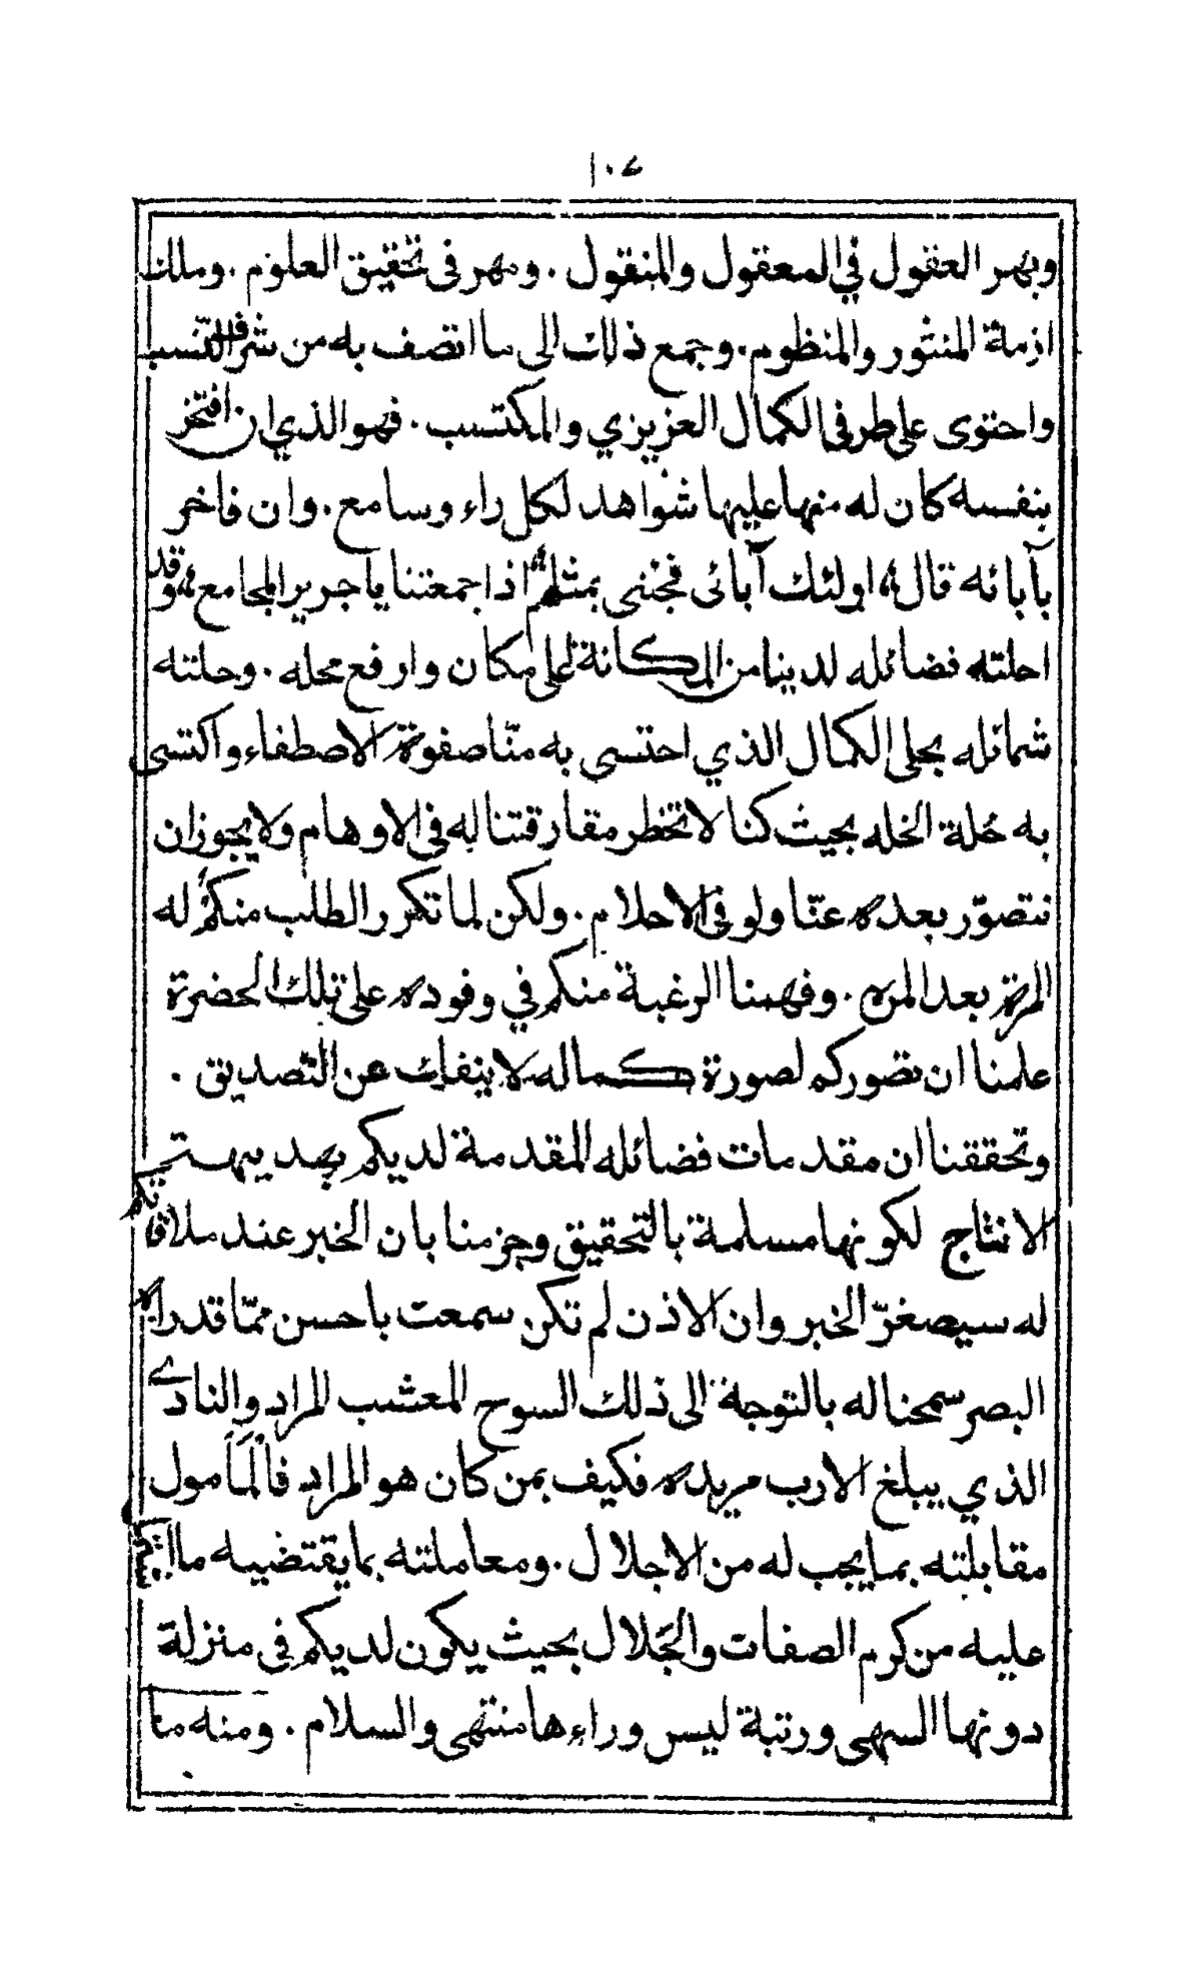 ١٠٧
وبهر العقول في المعقول والمنقول . ومهر فى تحقيق العلوم . وملك
ازمة المنثور والمنظوم . وجمع ذلك الى ما اتصف به من شرف النسب
واحتوى على طرفى الكمال العزيزي والمكتسب . فهو الذي ان افتخر
بنفسه كان له منها عليها شواهد لكل راء وسامع . وان فاخر
بآبائه قال ، اولئك آبائى فجئنى بمثلهم اذا جمعتنا يا جرير المجامع ، وقد
احلته فضائله لدينا من المكانة اعلى مكان وارفع محله . وحلته
شمائله بحلى الكمال الذي احتسى به منّا صفوة الاصطفاء واكتسى
به حُلة الخله بحيث كنا لا تخطر مفارقتنا له فى الاوهام ولا يجوز ان
نتصوّر بعده عنّا ولو فى الاحلام . ولكن لما تكرر الطلب منكم له
المرة بعد المره . وفهمنا الرغبة منكم في وفوده على تلك الحضرة
علمنا ان تصوركم لصورة كماله لا ينفك عن التصديق .
وتحققنا ان مقدمات فضائله المقدمة لديكم بهديهت
الانتاج لكونها مسلمة بالتحقيق وجزمنا بان الخبر عند ملاقاتكم
له سيصغرّ الخبر وان الاذن لم تكن سمعت باحسن ممّا قد راه
البصر سمحنا له بالتوجة الى ذلك السوح المعشب المراد والنادي
الذي يبلغ الارب مريده فكيف بمن كان هو المراد فالمأمول
مقابلته بما يجب له من الاجلال . ومعاملته بما يقتضيه ما
عليه من كرم الصفات والجَلال بحيث يكون لديكم فى منزلة
دونها السهى ورتبة ليس وراءها منتهى والسلام . ومنه ما